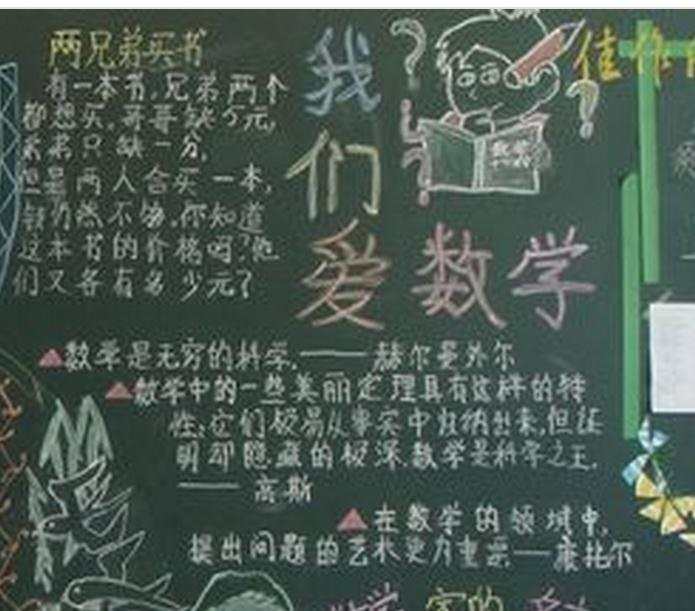 两兄弟买书
有一本书，兄弟两个
都想买，哥哥缺5元，
弟弟只缺一分，
但是两人合买一本，
钱仍然不够，你知道
这本书的价格吗？他
们又各有多少元？
我
们
爱数学
数学
佳作
数学是无穷的科学。——赫尔曼外尔
数学中的一些美丽定理具有这样的特
性：它们极易从事实中归纳出来，但证
明却隐藏的极深数学是科学之王。
——高斯
在数学的领域中，
提出问题的艺术更为重要——康托尔
数学家的